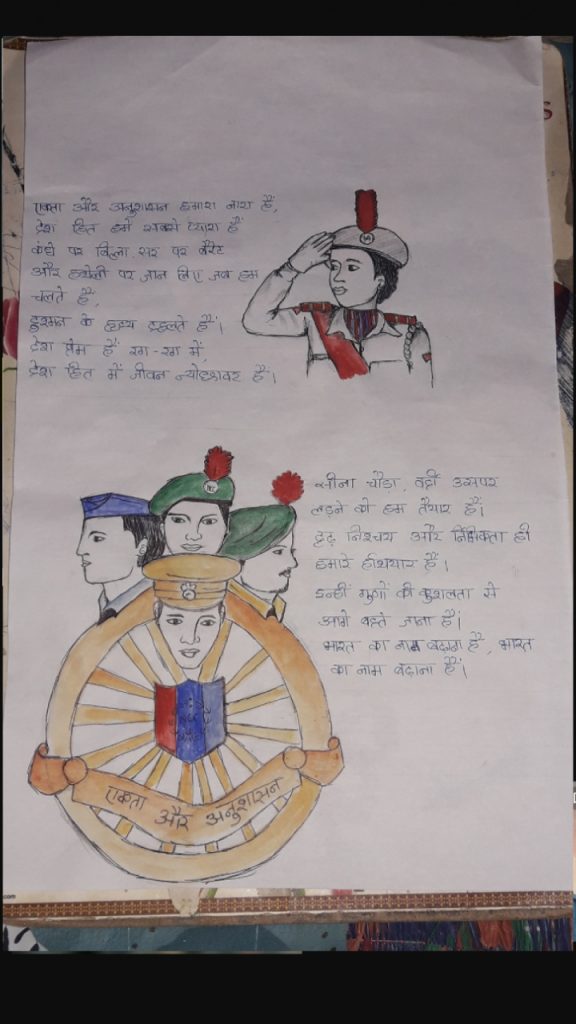 एकता और अनुशासन हमारा नारा हैं,
देश हित हमें सबसे प्यारा हैं
कंधे पर बिल्ला सर पर बैरेट
और हथेली पर जान लिए जब हम
चलते हैं,
दुश्मन के हृदय दहलते हैं।
देश प्रेम हैं रग-रग में,
देश हित में जीवन न्योछावर हैं।
सीना चौड़ा, वर्दी उसपर
लड़ने को हम तैयार हैं।
दृढ़ निश्चय और निर्भिकता ही
हमारे हथियार हैं।
इन्हीं गुणों की कुशलता से
आगे बढ़ते जाना हैं।
भारत का नाम बढ़ाना हैं, भारत
का नाम बढ़ाना हैं।
एकता और अनुशासन